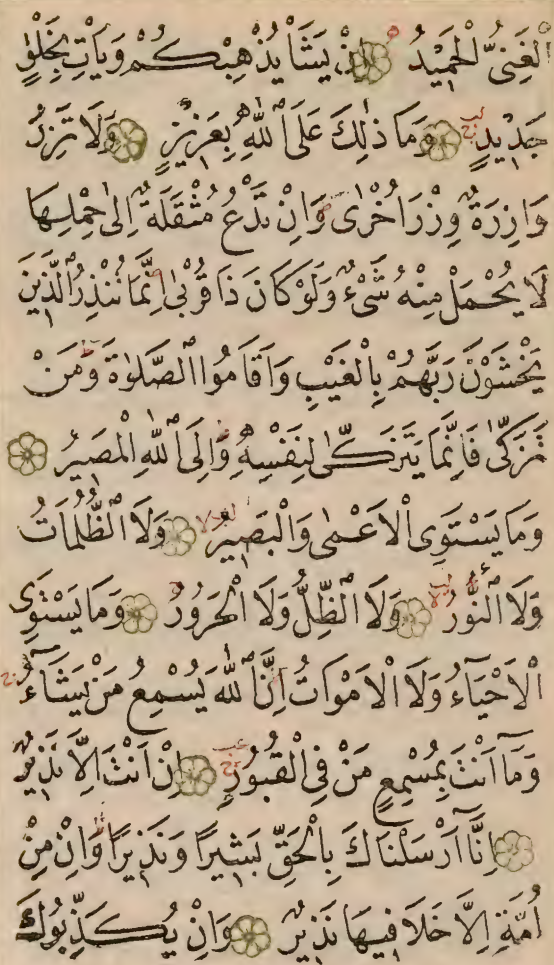 الْغَنِىُّ الْحَمِيْدُ ۝ اِنْ يَشَأْ يُذْهِبْكُمْ وَيَأْتِ بِخَلْقٍ
جَدِيْدٍ ۝ وَمَا ذٰلِكَ عَلَى اللّٰهِ بِعَزِيْزٍ ۝ وَلَا تَزِرُ
وَازِرَةٌ وِزْرَ اُخْرٰى وَاِنْ تَدْعُ مُثْقَلَةٌ اِلٰى حِمْلِهَا
لَا يُحْمَلْ مِنْهُ شَىْءٌ وَلَوْ كَانَ ذَا قُرْبٰى اِنَّمَا تُنْذِرُ الَّذِيْنَ
يَخْشَوْنَ رَبَّهُمْ بِالْغَيْبِ وَاَقَامُوا الصَّلٰوةَ وَمَنْ
تَزَكّٰى فَاِنَّمَا يَتَزَكّٰى لِنَفْسِهٖ وَاِلَى اللّٰهِ الْمَصِيْرُ ۝
وَمَا يَسْتَوِى الْاَعْمٰى وَالْبَصِيْرُ ۝ وَلَا الظُّلُمَاتُ
وَلَا النُّوْرُ ۝ وَلَا الظِّلُّ وَلَا الْحَرُوْرُ ۝ وَمَا يَسْتَوِى
الْاَحْيَآءُ وَلَا الْاَمْوَاتُ اِنَّ اللّٰهَ يُسْمِعُ مَنْ يَشَآءُ
وَمَآ اَنْتَ بِمُسْمِعٍ مَنْ فِى الْقُبُوْرِ ۝ اِنْ اَنْتَ اِلَّا نَذِيْرٌ
۝ اِنَّآ اَرْسَلْنَاكَ بِالْحَقِّ بَشِيْرًا وَنَذِيْرًا وَاِنْ مِنْ
اُمَّةٍ اِلَّا خَلَا فِيْهَا نَذِيْرٌ ۝ وَاِنْ يُكَذِّبُوْكَ